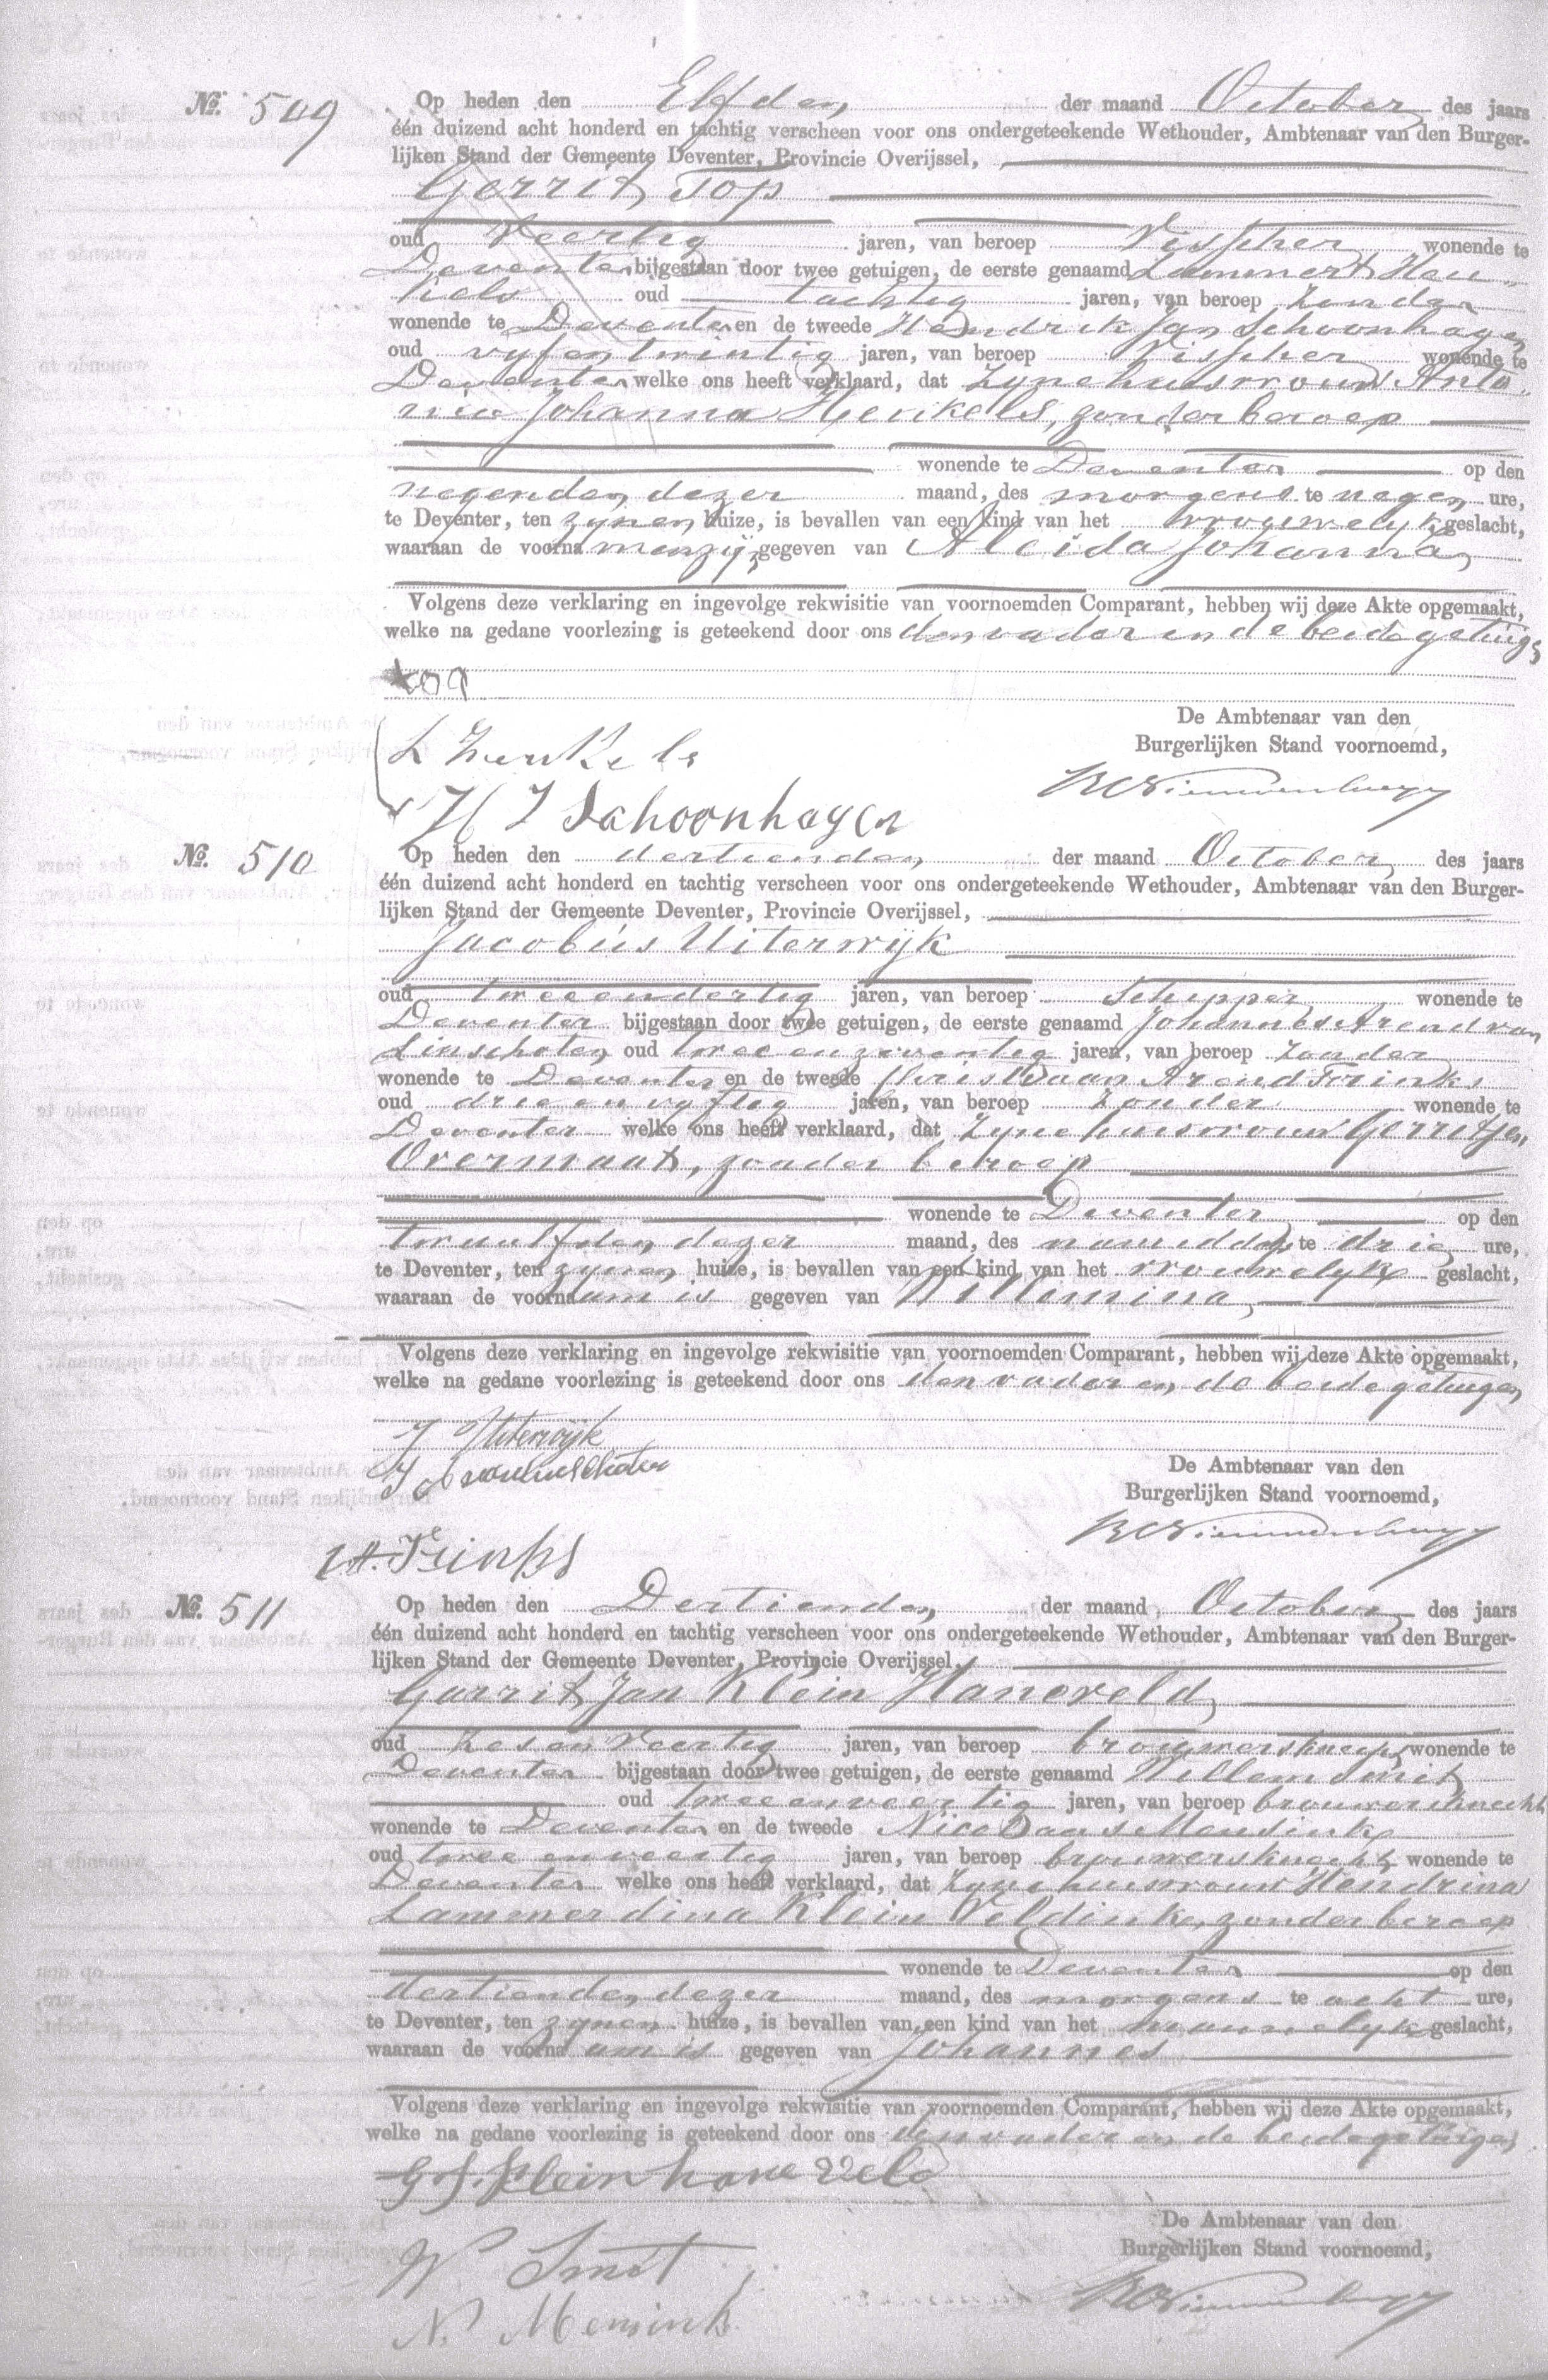 No. 509 Op heden den Elfden der maand October des jaars
één duizend acht honderd en tachtig verscheen voor ons ondergeteekende Wethouder, Ambtenaar van den Burger-
lijken Stand der Gemeente Deventer, Provincie Overijssel,
Gerrit Top
oud Veertig jaren, van beroep Visscher wonende te
Deventer bijgestaan door twee getuigen, de eerste genaamd Lammert Hen
kels oud tachtig jaren, van beroep Zonder
wonende te Deventer en de tweede Hendrik Jan Schoonhagen
oud vyfentwintig jaren, van beroep Visscher wonende te
Deventer welke ons heeft verklaard, dat Zyne huisvrouw Anto
nia Johanna Henkels, zonder beroep
wonende te Deventer op den
negenden dezer maand, des morgens te negen ure,
te Deventer, ten zynen huize, is bevallen van een kind van het vrouwelyk geslacht,
waaraan de voorna men zijn gegeven van Aleida Johanna
Volgens deze verklaring en ingevolge rekwisitie van voornoemden Comparant, hebben wij deze Akte opgemaakt,
welke na gedane voorlezing is geteekend door ons den vader en de beide getuigen
top
De Ambtenaar van den
Burgerlijken Stand voornoemd,
L Henkels
H J Schoonhagen
No. 510 Op heden den dertienden der maand October des jaars
één duizend acht honderd en tachtig verscheen voor ons ondergeteekende Wethouder, Ambtenaar van den Burger-
lijken Stand der Gemeente Deventer, Provincie Overijssel,
Jacobus Uiterwijk
oud tweeendertig jaren, van beroep Schipper wonende te
Deventer bijgestaan door twee getuigen, de eerste genaamd Johannes Arend van
Linschoten oud twee en zeventig jaren, van beroep Zonder
wonende te Deventer en de tweede Christiaan Arend Frinks
oud drie en vyftig jaren, van beroep Zonder wonende te
Deventer welke ons heeft verklaard, dat Zyne huisvrouw Gerritjen
Overmaat, zonder beroep
wonende te Deventer op den
twaalfden dezer maand, des namiddags te drie ure,
te Deventer, ten zynen huize, is bevallen van een kind van het vrouwelyk geslacht,
waaraan de voorna am is gegeven van Willemina
Volgens deze verklaring en ingevolge rekwisitie van voornoemden Comparant, hebben wij deze Akte opgemaakt,
welke na gedane voorlezing is geteekend door ons den vader en de beide getuigen
J Uiterwijk
De Ambtenaar van den
Burgerlijken Stand voornoemd,
No. 511 Op heden den Dertienden der maand October des jaars
één duizend acht honderd en tachtig verscheen voor ons ondergeteekende Wethouder, Ambtenaar van den Burger-
lijken Stand der Gemeente Deventer, Provincie Overijssel,
Garrit Jan Klein Haneveld
oud Zes en Veertig jaren, van beroep brouwersknecht wonende te
Deventer bijgestaan door twee getuigen, de eerste genaamd Willem Smit
oud twee en veertig jaren, van beroep brouwersknecht
wonende te Deventer en de tweede Nicolaas Mensink
oud twee en veertig jaren, van beroep brouwersknecht wonende te
Deventer welke ons heeft verklaard, dat Zyne huisvrouw Hendrina
Lammerdina Klein Veldink, zonder beroep
wonende te Deventer op den
dertienden dezer maand, des morgens te acht ure,
te Deventer, ten zynen huize, is bevallen van een kind van het mannelyk geslacht,
waaraan de voorna am is gegeven van Johannes
Volgens deze verklaring en ingevolge rekwisitie van voornoemden Comparant, hebben wij deze Akte opgemaakt,
welke na gedane voorlezing is geteekend door ons den vader en de beide getuigen
G J. Klein haneveld
De Ambtenaar van den
Burgerlijken Stand voornoemd,
W Smit
N. Mensink